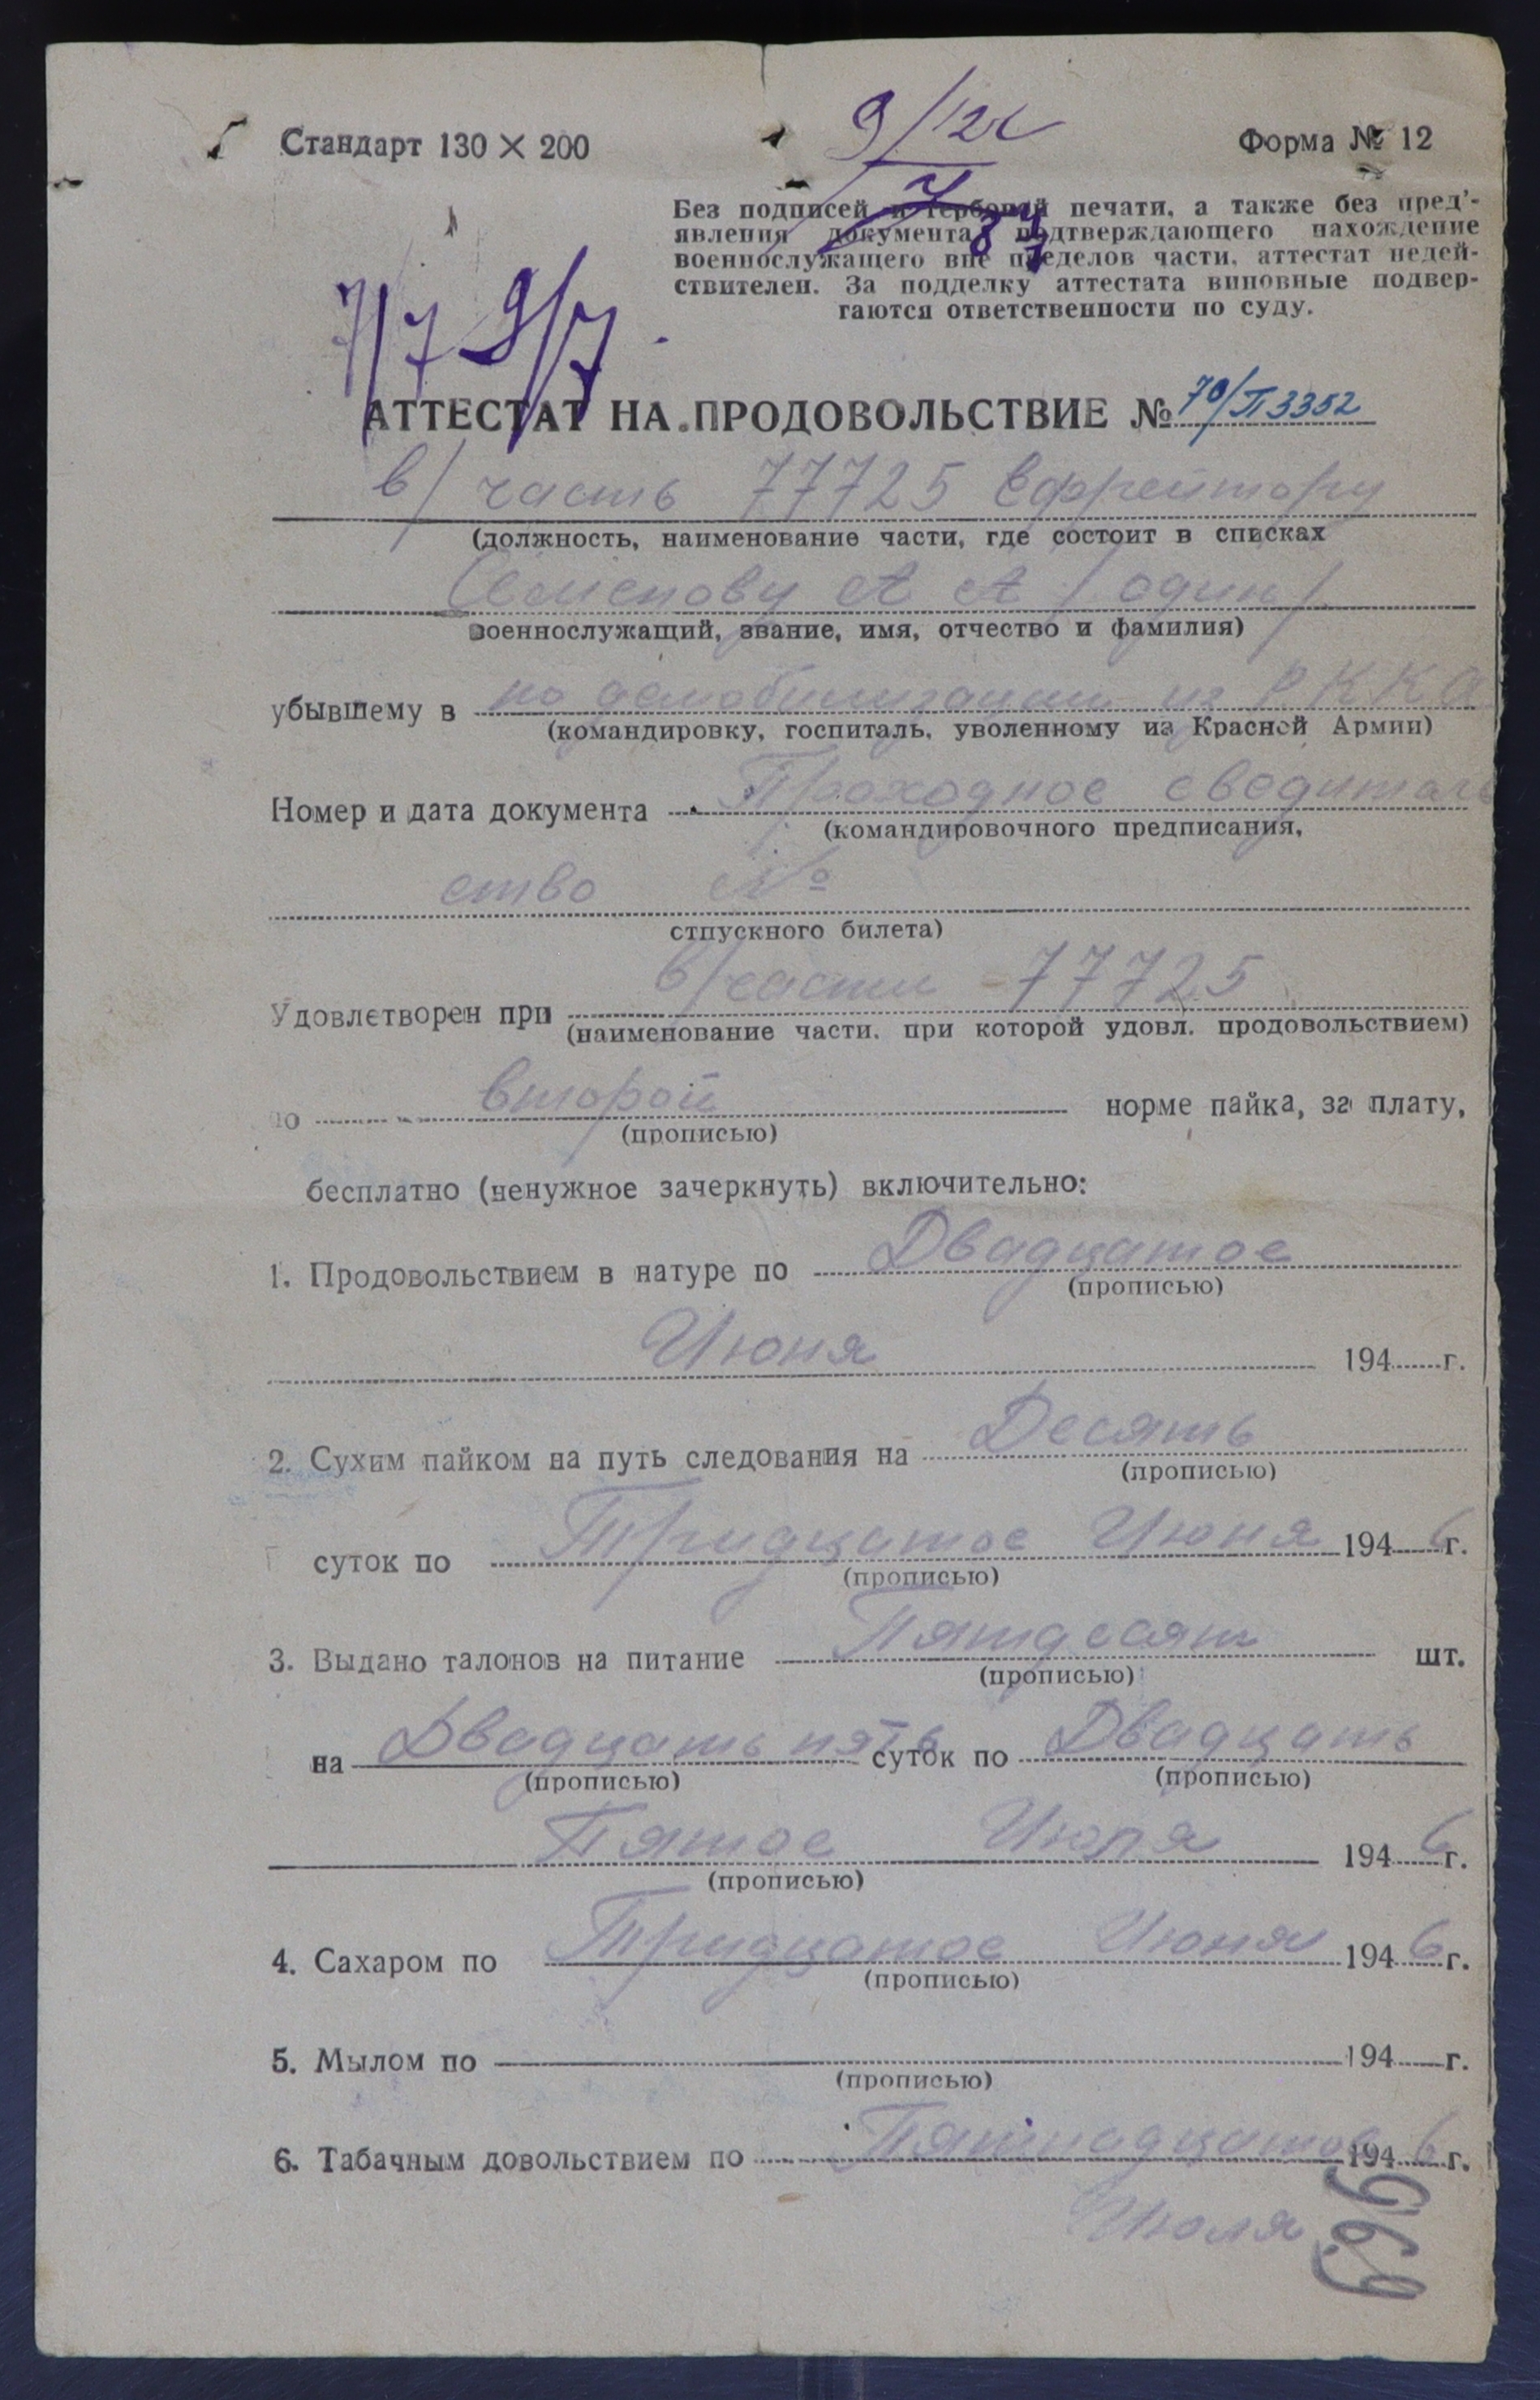 9/12
Стандарт 130 × 200
Форма № 12
Без подписей и гербовой печати, а также без пред'-
явления документа, подтверждающего нахождение
военнослужащего вне пределов части, аттестат недей-
ствителен. За подделку аттестата виновные подвер-
гаются ответственности по суду.
7/7 9/7
АТТЕСТАТ НА ПРОДОВОЛЬСТВИЕ № 70/П3352
в/часть 77725 Ефрейтору
(должность, наименование части, где состоит в списках
Семенову А А /один/
военнослужащий, звание, имя, отчество и фамилия)
убывшему в по демобилизации из РККА
(командировку, госпиталь, уволенному из Красной Армии)
Номер и дата документа Проходное сведитель
(командировочного предписания,
ство №
отпускного билета)
Удовлетворен при в/части 77725
(наименование части, при которой удовл. продовольствием)
по второй норме пайка, за плату,
(прописью)
бесплатно (ненужное зачеркнуть) включительно:
1. Продовольствием в натуре по Двадцатое
(прописью)
Июня 194 г.
2. Сухим пайком на путь следования на Десять
(прописью)
суток по Тридцатое Июня 1946 г.
(прописью)
3. Выдано талонов на питание Пятдесят шт.
(прописью)
на Двадцать пять суток по Двадцать
(прописью) (прописью)
Пятое Июля 1946 г.
(прописью)
4. Сахаром по Тридцатое Июня 1946 г.
(прописью)
5. Мылом по 194 г.
(прописью)
6. Табачным довольствием по Пятнадцатое 1946 г.
Июля